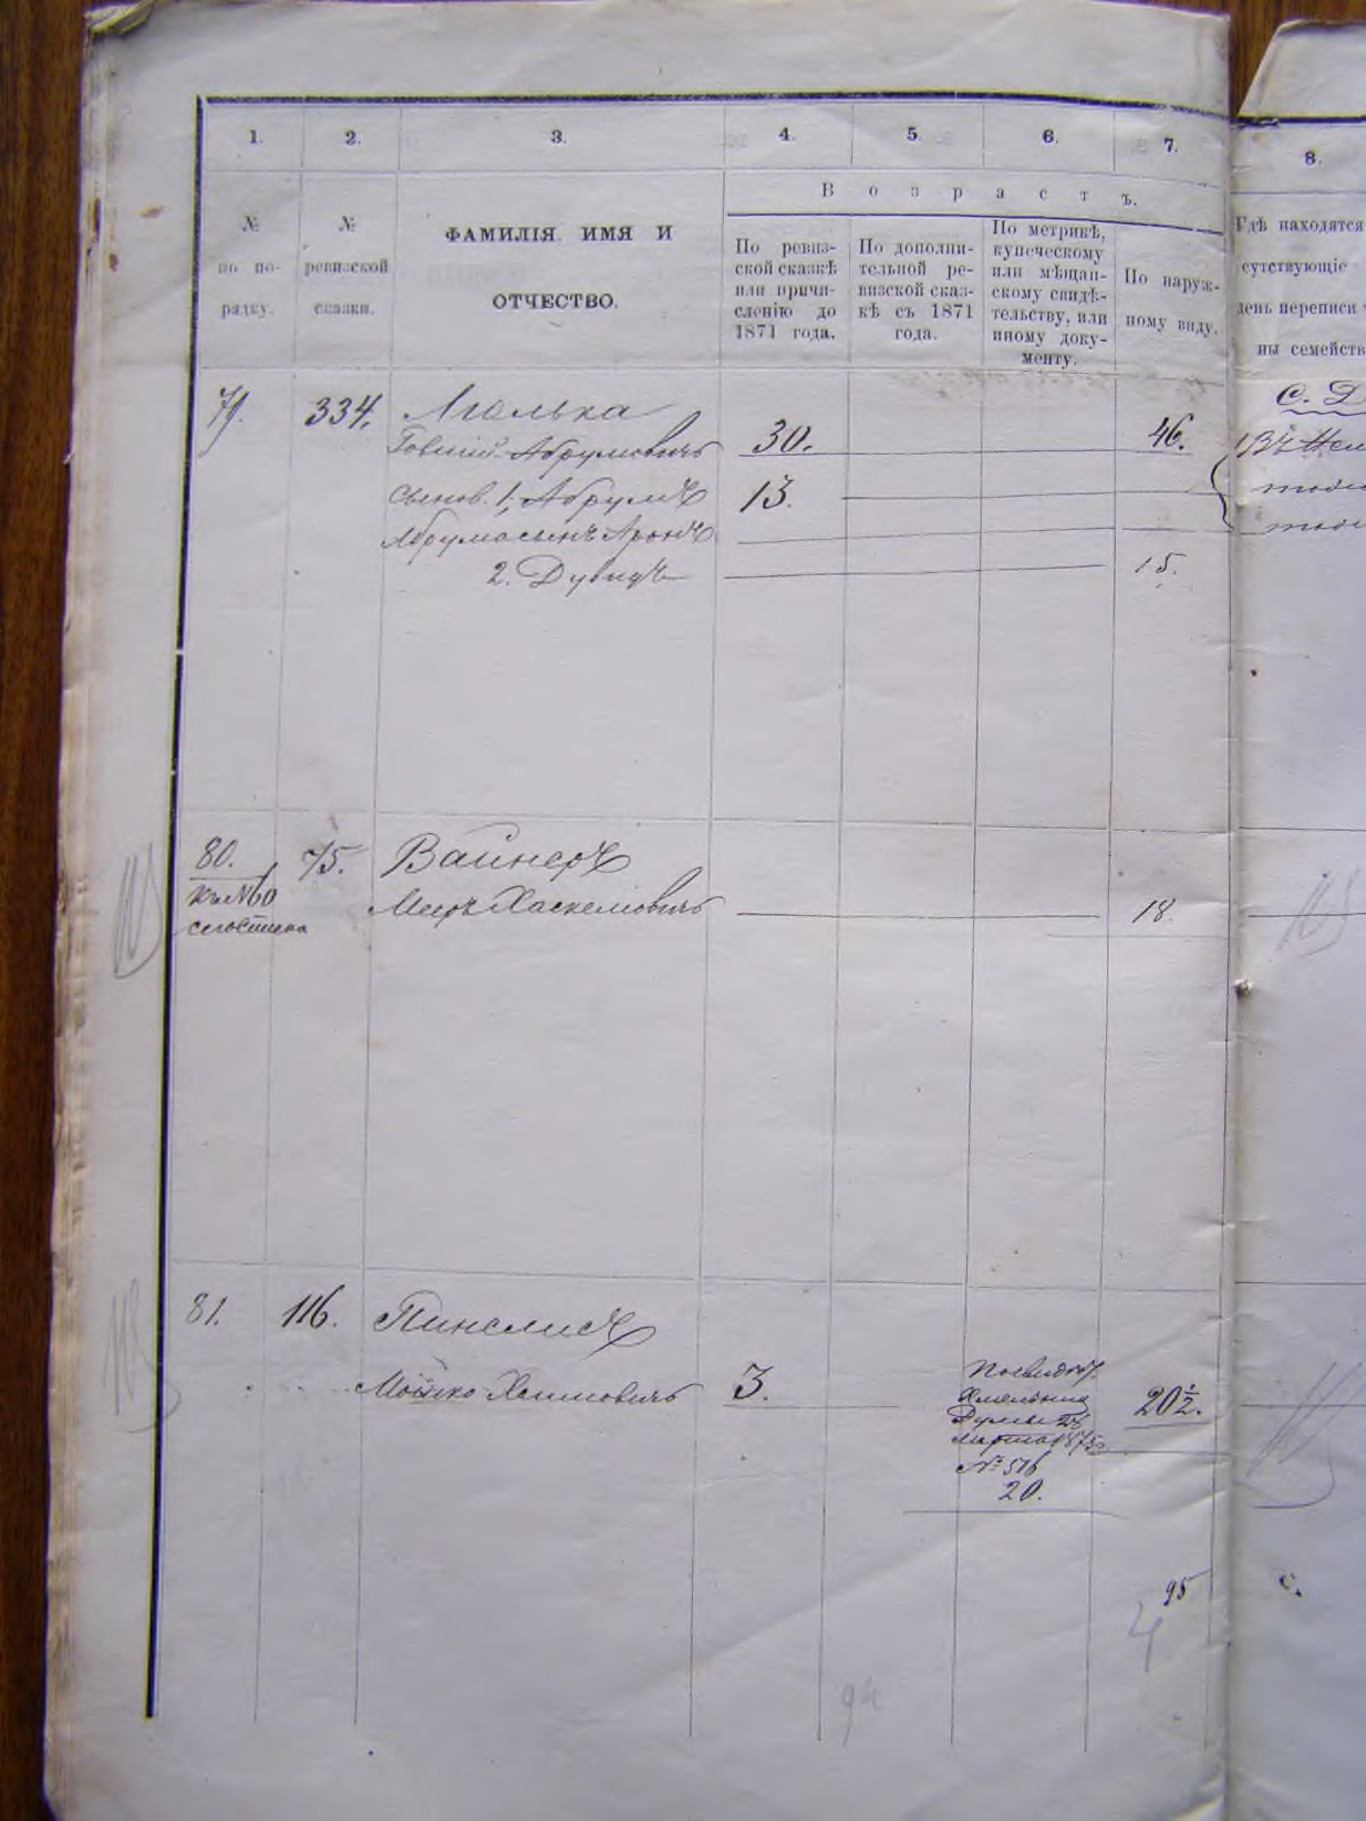 1. 2. 3. 4. 5. 6. 7. 8.
№ по по-
рядку.
№
ревизской
сказки.
ФАМИЛІЯ ИМЯ И
ОТЧЕСТВО.
Возрастъ.
По ревиз-
ской сказкѣ
или причи-
сленію до
1871 года.
По дополни-
тельной ре-
визской сказ-
кѣ съ 1871
года.
По метрикѣ,
купеческому
или мѣщан-
скому свидѣ-
тельству, или
иному доку-
менту.
По наруж-
ному виду.
Гдѣ находятся
сутствующіе
день переписи
ны семейств
79. 334.
Абрумовичъ 30. 46.
Сынов. 1, Абрумъ 13.
Аронъ
2. Дувидъ 15.
80. 75. Вайнеръ
Меръ Хаскелювичъ 18.
81. 116. Пинелисъ
Мошко Хаимовичъ 3. 20½.
Думы
марта
№ 516
20.
95
94